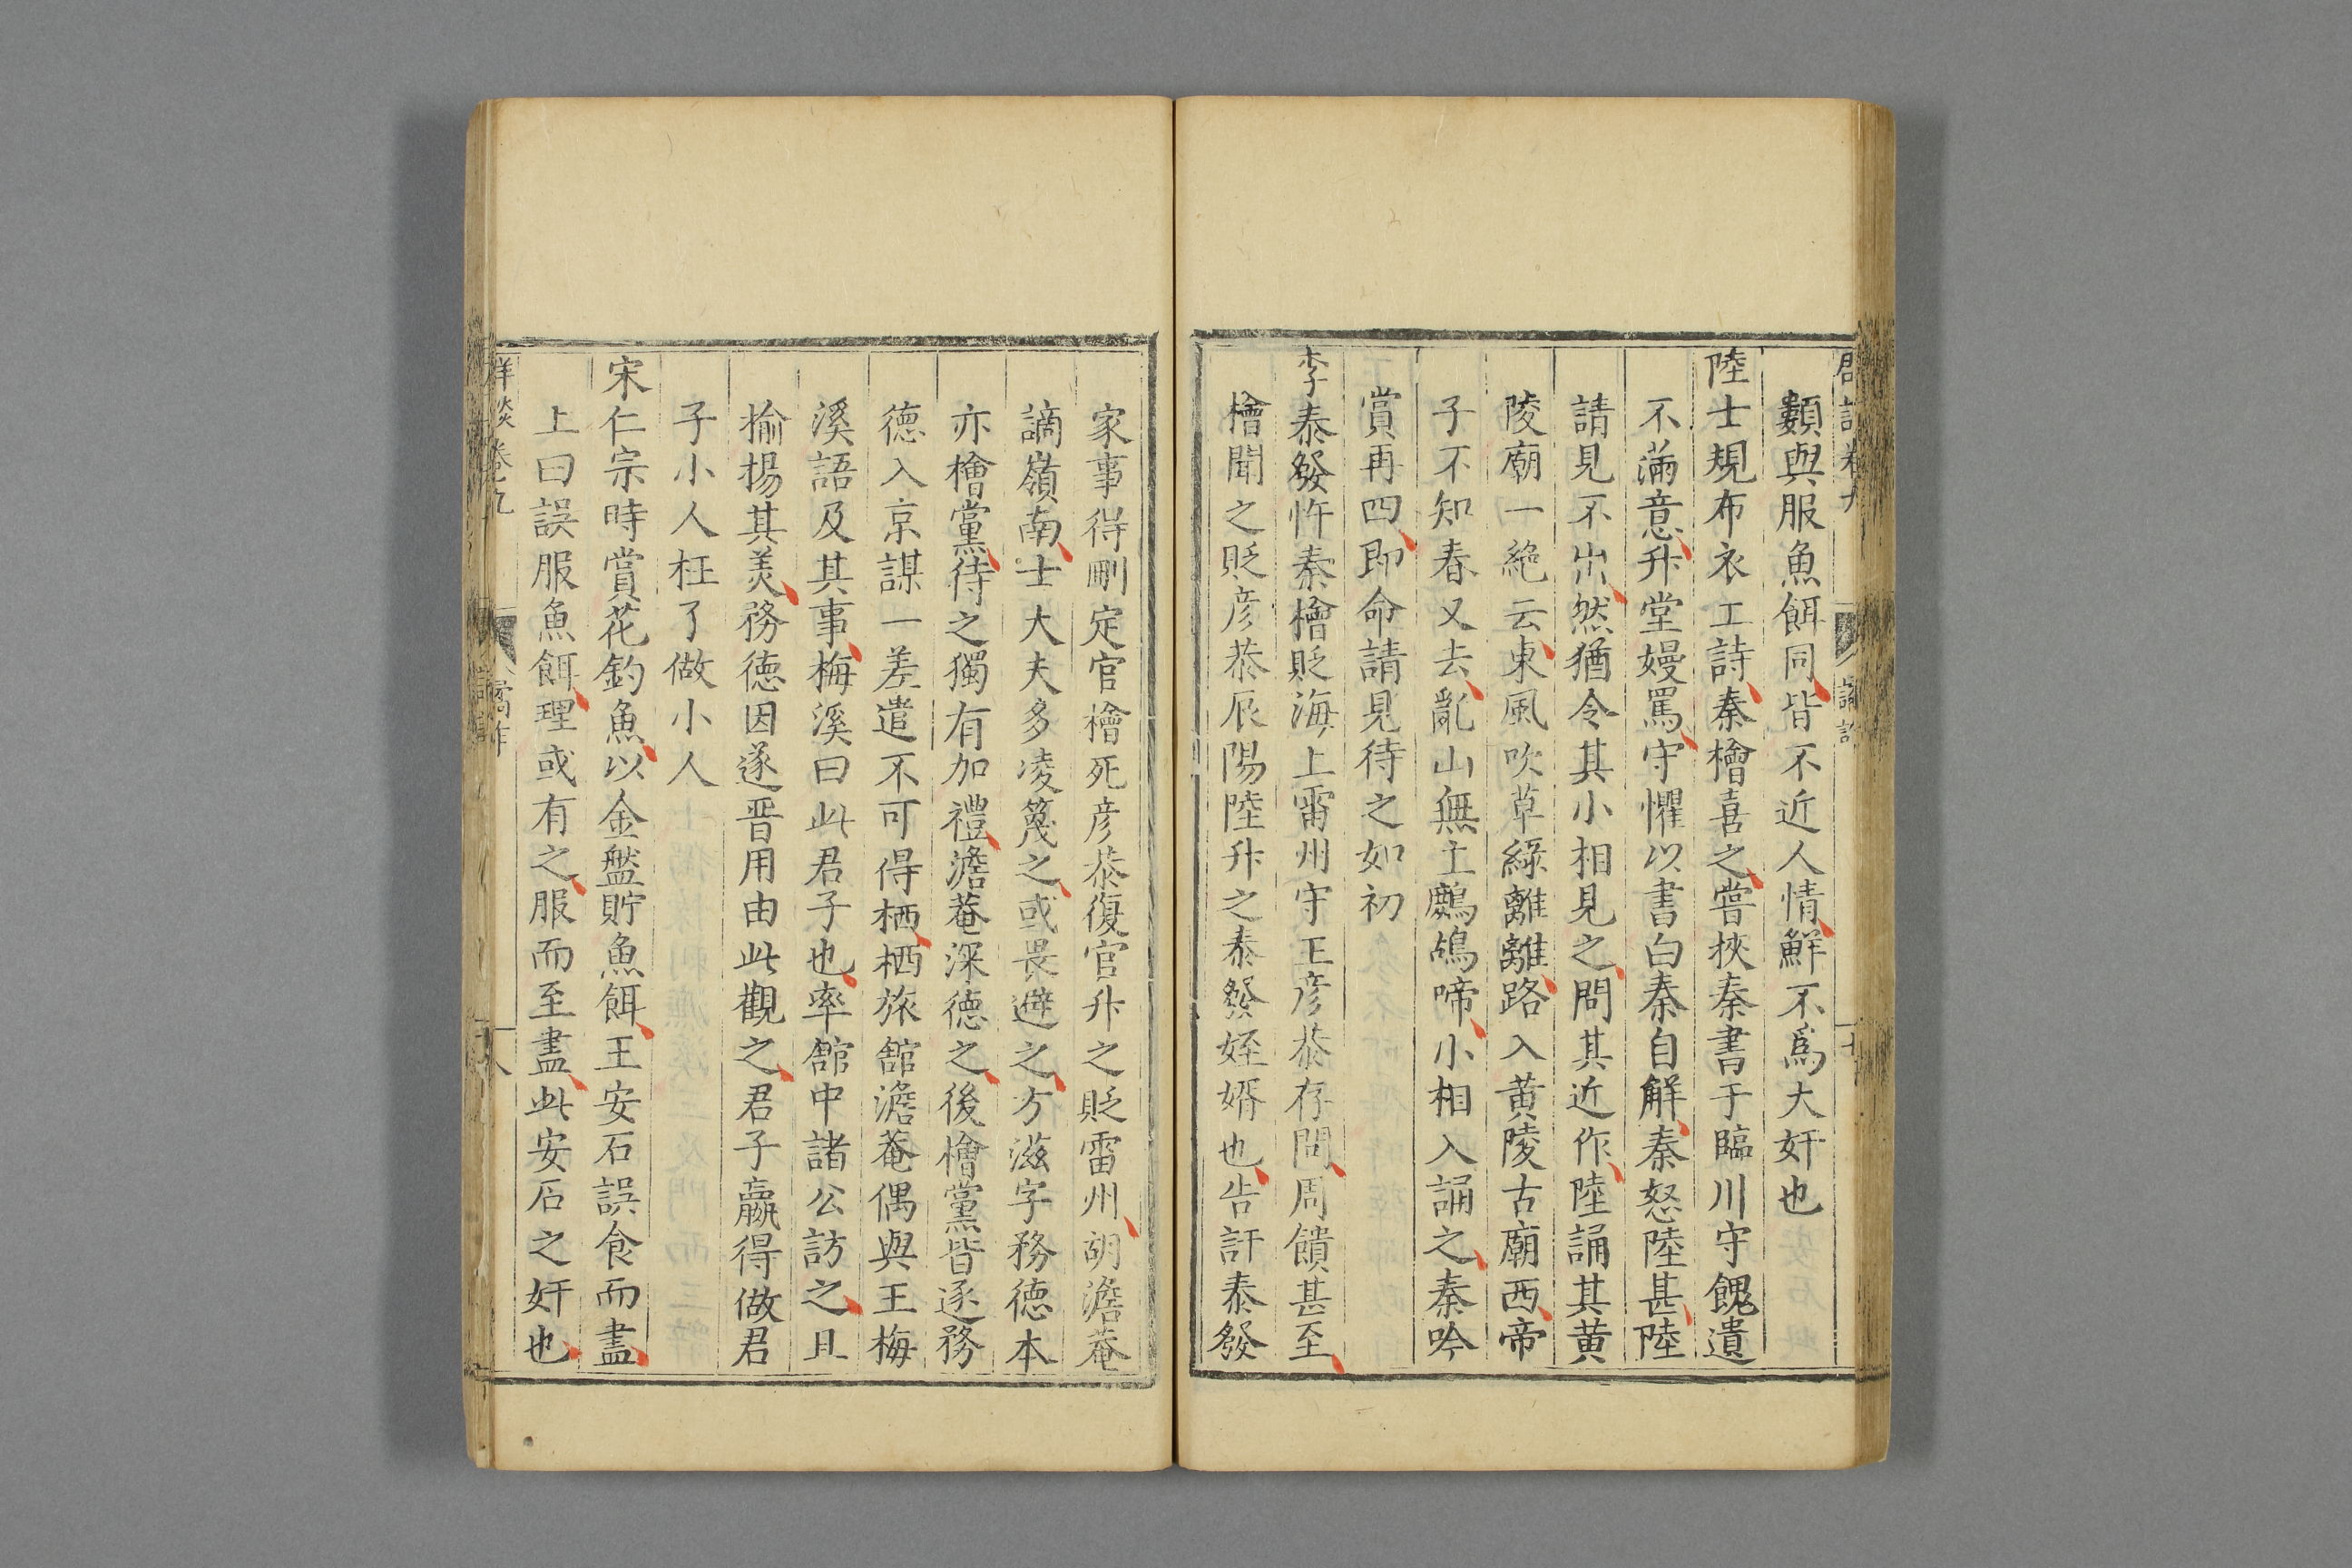 纇與服魚餌同皆不近人情鮮不爲大奸也
陸士規布衣工詩秦檜喜之嘗挾秦書于臨川守餽遺
不滿意升堂嫚罵守懼以書白秦自解秦怒陸甚陸
請見不出然猶令其小相見之問其近作陸誦其黄
陵廟一絶云東風吹草綠離離路入黄陵古廟西帝
子不知春又去亂山無主鷓鴣啼小相入誦之秦吟
賞再四即命請見待之如初
李泰發忤秦檜貶海上雷州守王彦恭存問周饋甚至
檜聞之貶彦恭辰陽陸升之泰發姪婿也告訐泰發
家事得刪定官檜死彦恭復官升之貶雷州胡澹菴
謫嶺南士大夫多凌篾之或畏避之方滋字務德本
亦檜黨待之獨有加禮澹菴深德之後檜黨皆逐務
德入京謀一差遣不可得栖栖旅舘澹菴偶與王梅
溪語及其事梅溪曰此君子也率舘中諸公訪之且
揄揚其美務德因遂晋用由此觀之君子贏得做君
子小人枉了做小人
宋仁宗時賞花釣魚以金盤貯魚餌王安石誤食而盡
上曰誤服魚餌理或有之服而至盡此安石之奸也